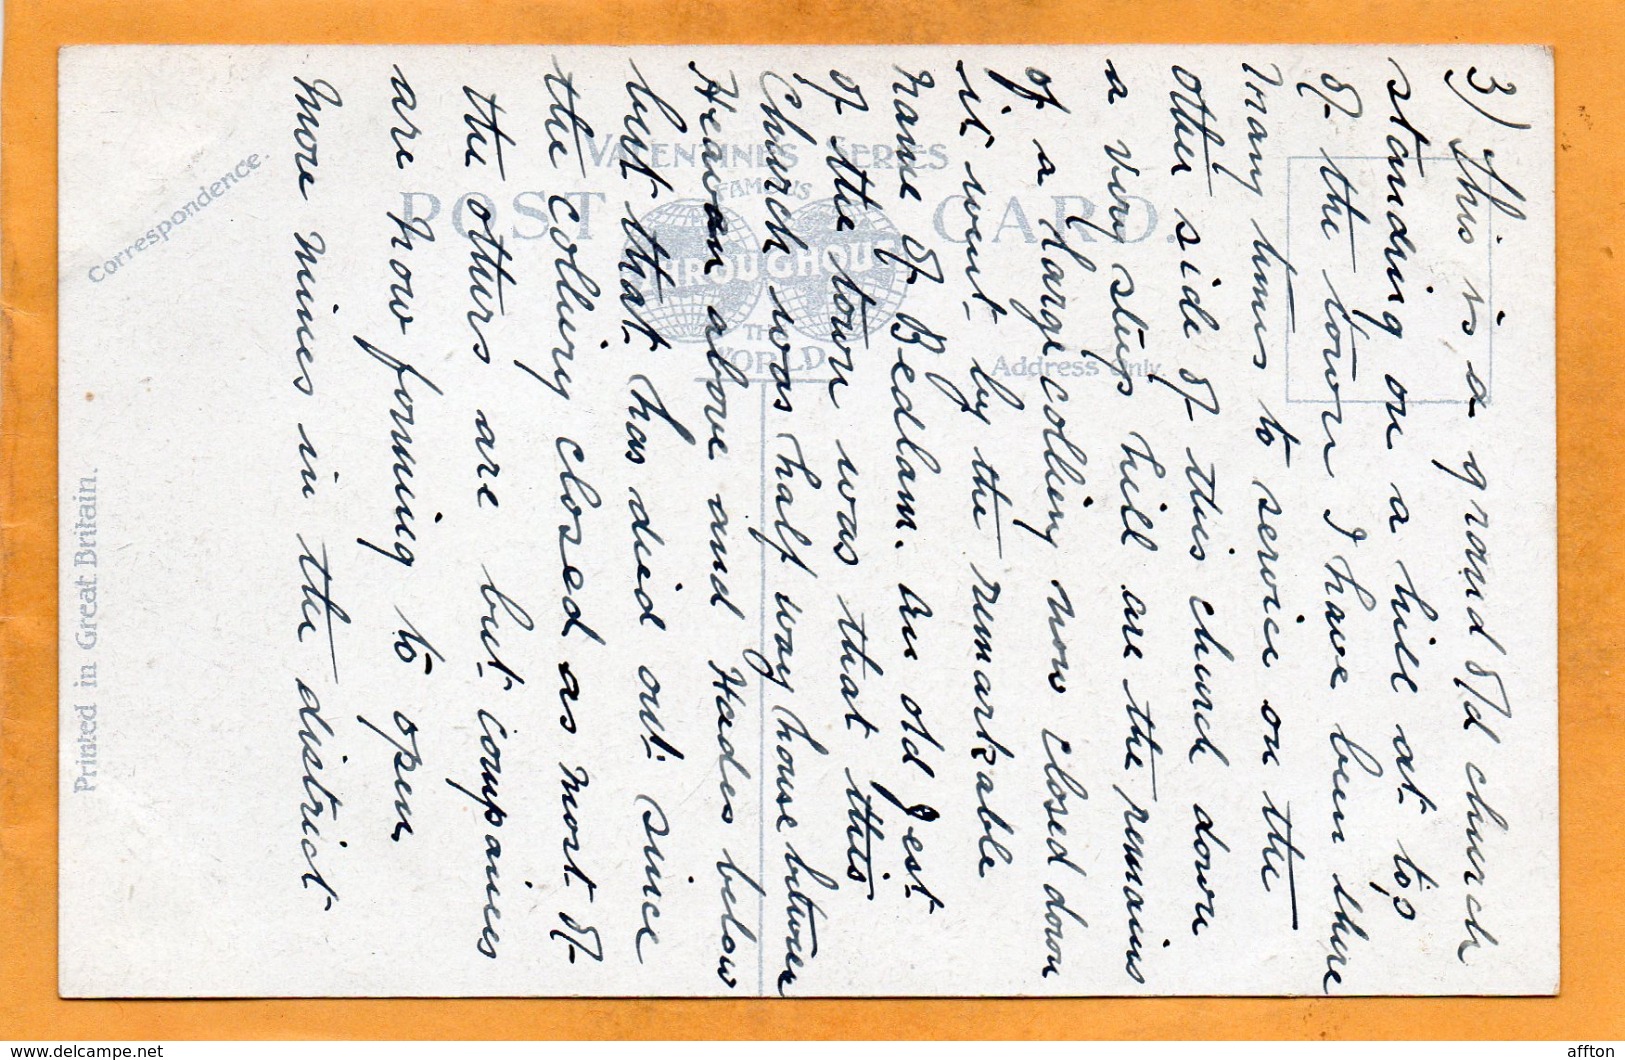 3) This is a grand old church
standing on a hill at top
of the town I have been there
many times to service on the
other side of this church down
a very steep hill are the remains
of a large colliery now closed down
it went by the remarkable
name of Bedlam. an old Jest
of the town was that this
Church was half way house between
Heavan above and Hades below
but that has died out since
the colliery closed as most of
the others are but companies
are now forming to open
more mines in the district
VALENTINES SERIES
FAMOUS
POST CARD.
THROUGHOUT
THE
WORLD
Correspondence.
Address Only.
Printed in Great Britain.
delcampe.net
affton